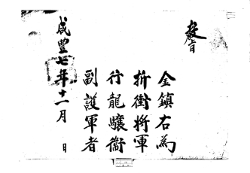 教旨
金鎭右爲
折衝將軍
行龍驤衛
副護軍者
咸豐七年十一月 日